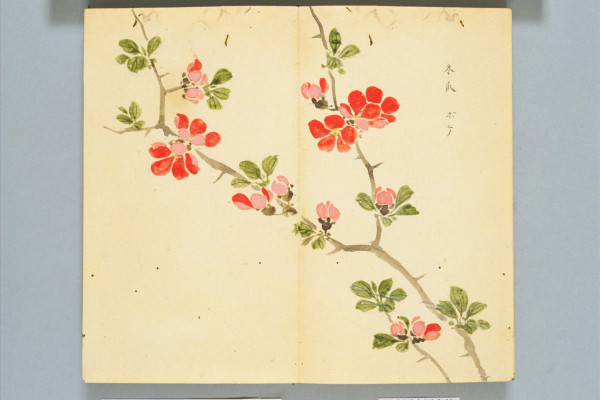 木瓜 ボケ